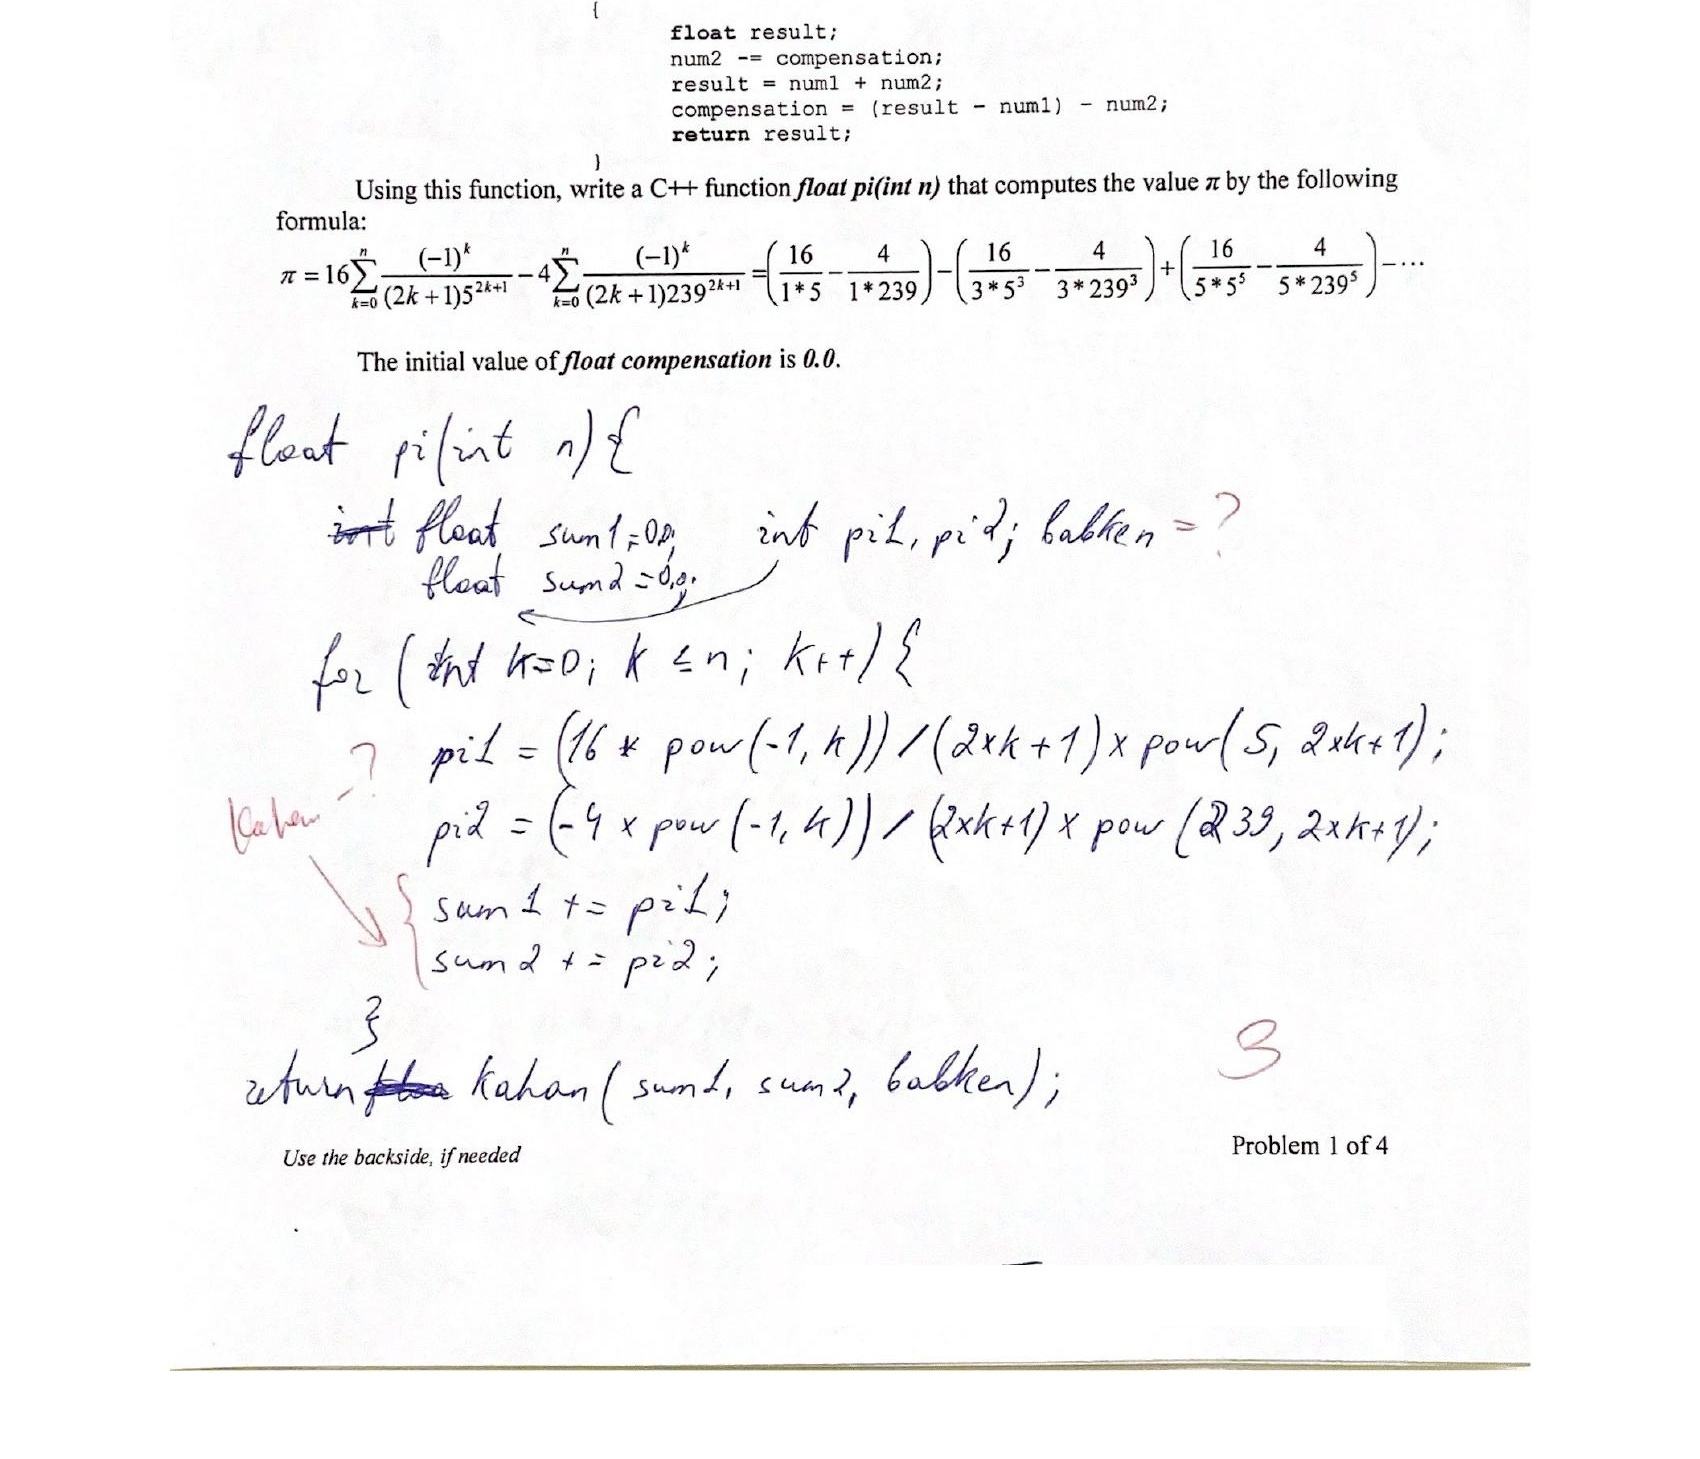 {
float result;
num2 -= compensation;
result = num1 + num2;
compensation = (result - num1) - num2;
return result;
}
Using this function, write a C++ function float pi(int n) that computes the value π by the following
formula:
π = 16 ∑_{k=0}^{n} (-1)^k / ((2k+1)5^{2k+1}) - 4 ∑_{k=0}^{n} (-1)^k / ((2k+1)239^{2k+1}) = (16/(1*5) - 4/(1*239)) - (16/(3*5^3) - 4/(3*239^3)) + (16/(5*5^5) - 4/(5*239^5)) - ...
The initial value of float compensation is 0.0.
float pi(int n) {
int float sum1=0.0; int pi1, pi2; babken = ?
float sum2=0.0;
for (int k=0; k ≤ n; k++) {
? pi1 = (16 * pow(-1, k)) / (2xk+1) x pow(5, 2xk+1);
Kahan
pi2 = (-4 x pow(-1, k)) / (2xk+1) x pow (239, 2xk+1);
{ sum1 += pi1;
sum2 += pi2;
}
3
return kahan (sum1, sum2, babken);
Use the backside, if needed
Problem 1 of 4